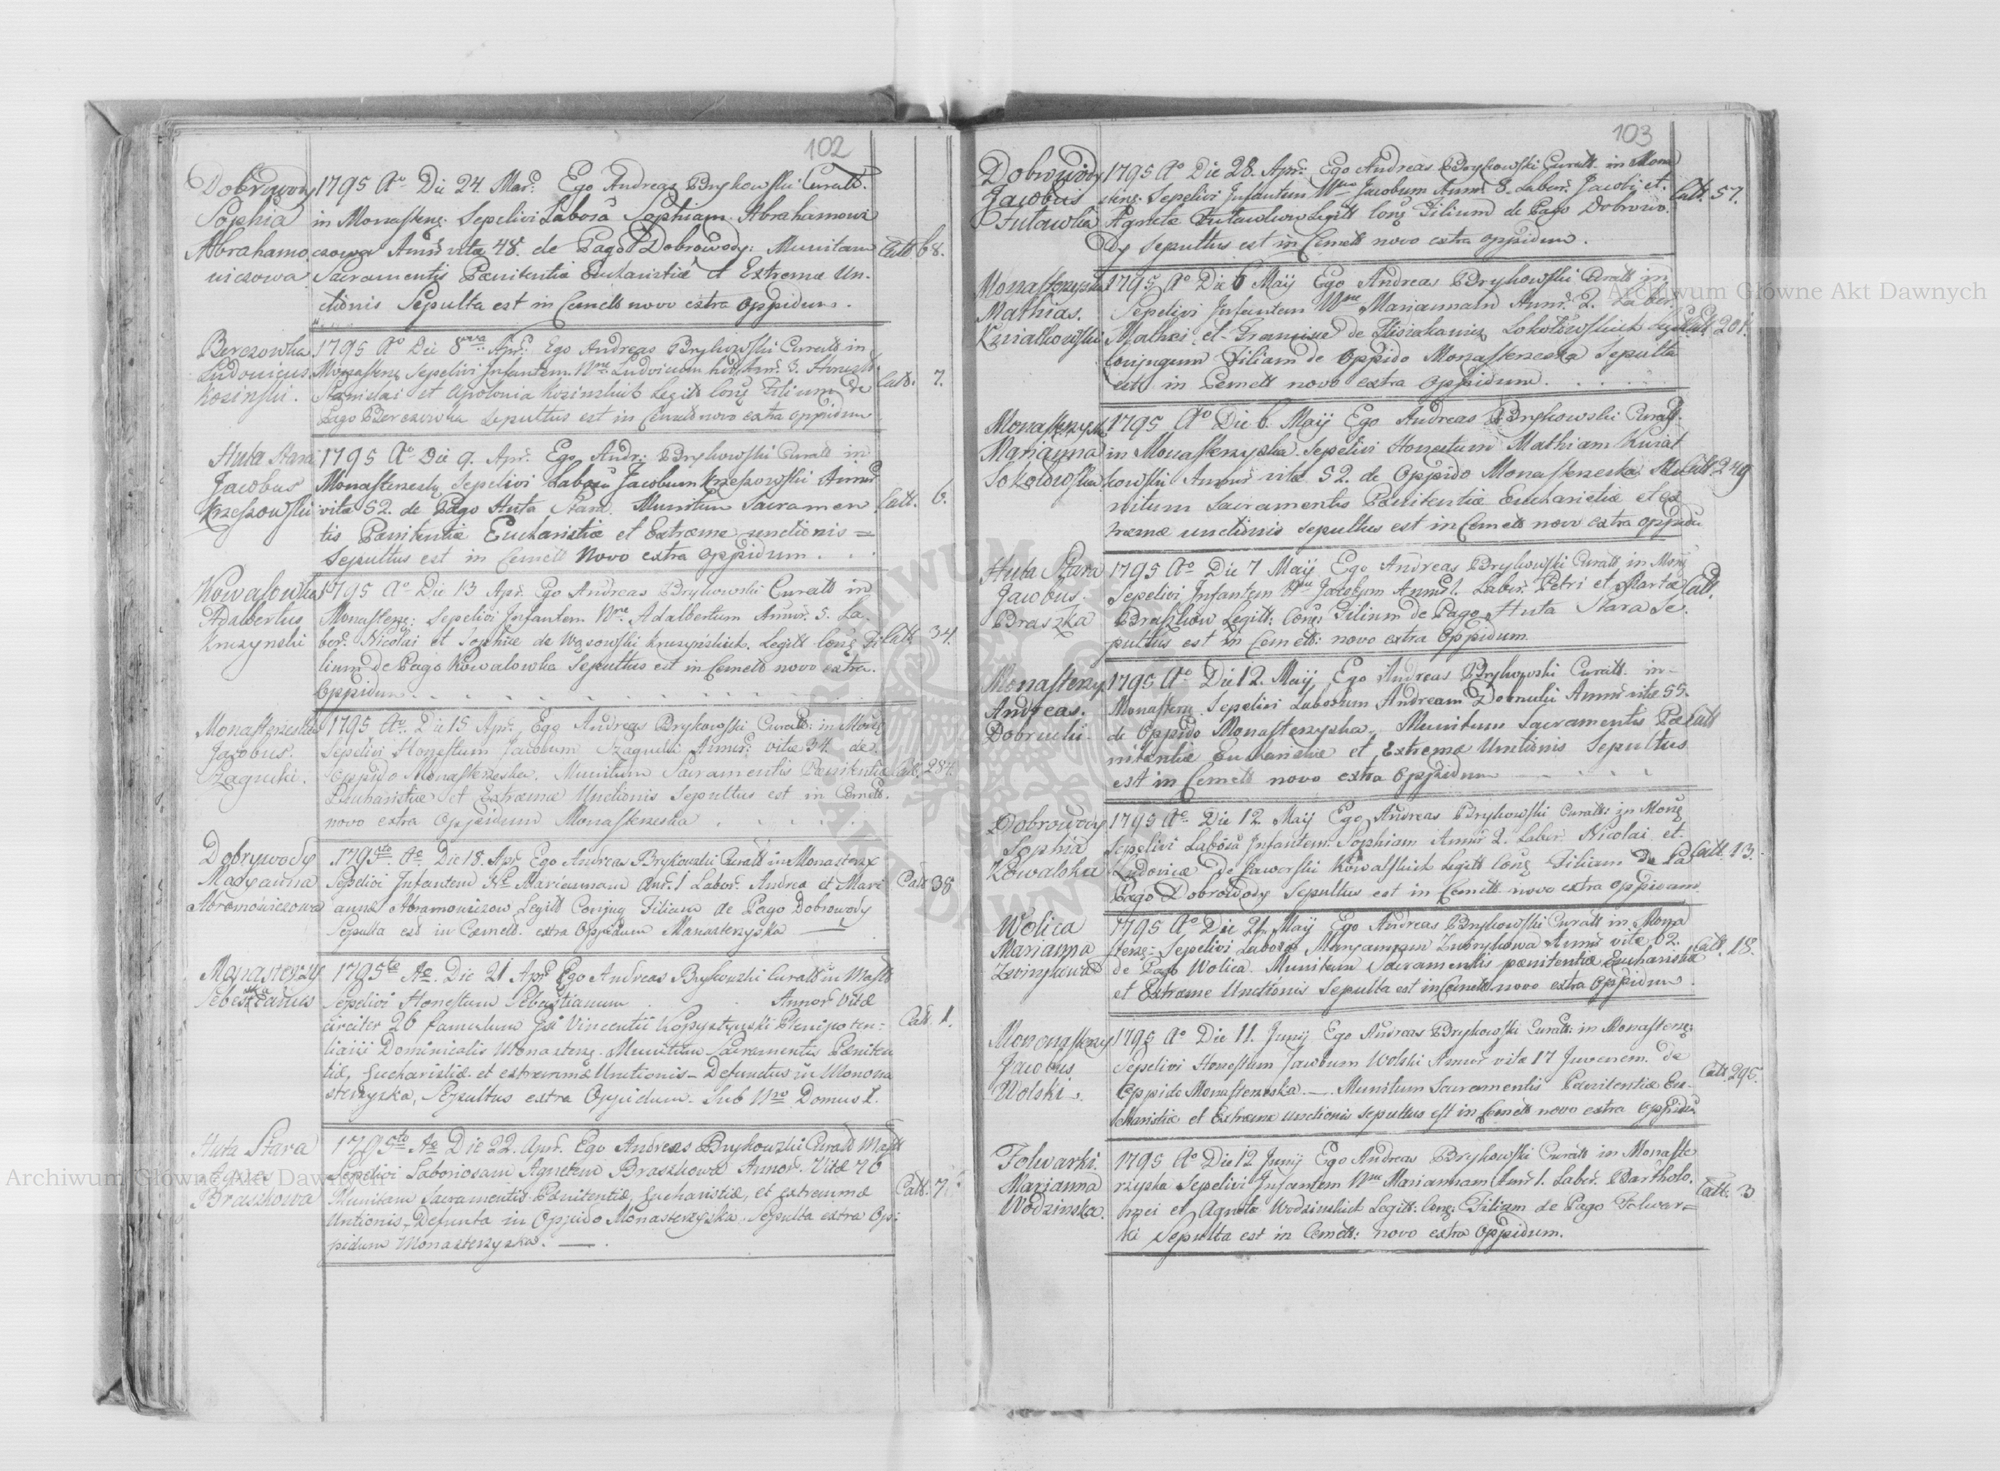 102
Dobrowody
Sophia
Abrahamo
wiczowa
1795 Ao Die 24. Mar. Ego Andreas Brykowski Curatt.
in Monasterz: Sepelivi Labosa Sophiam Abrahamowi
czowa Annor vitae 48. de Pago Dobrowody: Munitam
Sacramentis Paenitentiae Eucharistiae et Extremae Un-
ctionis Sepulta est in Cemett novo extra oppidum.
Catt. 68.
Berezowka
Ludovicus
Kozinski.
1795 Ao Die 8va Apr: Ego Andreas Brykowski Curatt in
Monasterz Sepelivi Infantem Nne Ludovicum
Stanislai et Apolonia Kozinskich Legitt Conj Filium de
Pago Berezowka Sepultus est in Cemett novo extra oppidum
Catt. 7.
Huta Stara
Jacobus
Krzeszowski
1795 Ao Die 9. Apr. Ego Andr: Brykowski Curatt in
Monasterzysk Sepelivi Labosu Jacobum Krzeszowski Annor
vita 52. de Pago Huta Stara. Munitum Sacramen
tis Paenitentiae Eucharistiae et Extremae unctionis =
Sepultus est in Cemett Novo extra oppidum.
Catt. 6.
Kowalowka
Adalbertus
Kruzynski
1795 Ao Die 13 Apr. Ego Andreas Brykowski Curatt in
Monasterz: Sepelivi Infantem Nne Adalbertum Annor. 5. La-
bor. Nicolai et Sophiae de Wąsowski Kruzynskich. Legitt Conj Fi
lium de Pago Kowalowka Sepultus est in Cemett novo extra
Oppidum.
Catt. 34.
Monasterzeska
Jacobus
Szagucki.
1795 Ao. Die 15 Apr. Ego Andreas Brykowski Curatt: in Monas
Sepelivi Honestum Jacobum Szagucki Annor. vitae 34 de
Oppido Monasterzeska. Munitum Sacramentis Paenitentiae
Eucharistiae et Extremae Unctionis Sepultus est in Cemett.
novo extra Oppidum Monasterzeska
Catt. 284.
Dobrywody
Maryanna
Abramowiczowa
1795to Ao Die 18. Apr Ego Andreas Brykowski Curatt in Monasterz
Sepelivi Infantem Ne Mariannam Anr. 1 Labor. Andrea et Mari
anna Abramowiczow Legitt Conjug Filiam de Pago Dobrowody
Sepulta est in Cemett. extra Oppidum Monasterzyska
Catt 38
Monasterzys
ka
Sebestianus
1795to Ao. Die 21 Apr Ego Andreas Brykowski Curatt in Mastt
Sepelivi Honestum Sebastianum . . Annor Vitae
circiter 26 famulum Gsi Vincentii Kopystynski Plenipoten-
tiarii Dominicalis Monasterz. Munitum Sacramentis Paeniten
tiae, Eucharistiae et extremae Unctionis - Defunctus in Monona
sterzyska, Sepultus extra Oppidum. Sub Nro Domus 1.
Catt. 1.
Huta Stara
Agnes
Braszkowa
1795to Ao Die 22. Apr. Ego Andreas Brykowski Curatt Mastt
Sepelivi Laboriosam Agnetem Braszkowa Annor. Vitae 76
Munitam Sacramentis Paenitentiae, Eucharistiae, et extremae
Unctionis Defunta in Oppido Monasterzyska. Sepulta extra Op-
pidum Monasterzyska.
Catt. 7.
103
Dobrowody
Jacobus
Futawka
1795 Ao Die 28. Apr. Ego Andreas Brykowski Curatt. in Mona
sterz: Sepelivi Infantem Nne Jacobum Annor. 3. Labor. Jacobi et
Agneta Futawkow Legitt Conj Filium de Pago Dobrowo-
dy Sepultus est in Cemett novo extra oppidum.
Catt. 57.
Monasterzyska
Mathias.
Kwiatkowski
1795 Ao Die 6 Maij Ego Andreas Brykowski Curatt in
Sepelivi Infantem Nne Mariannam Annor. 2. Labor
Mathei et Francisca de Sokołowskich
Conjugum Filiam de Oppido Monasterzeska Sepulta
est in Cemett novo extra Oppidum.
Catt. 201.
Monasterzysk
Marianna
Sokołowska
1795 Ao Die 6 Maij Ego Andreas Brykowski Curatt.
in Monasterzyska Sepelivi Honestum Mathiam Kwiat
kowski Annor vitae 52. de Oppido Monasterzeska Mu
nitum Sacramentis Paenitentiae Eucharistiae et Ex
tremae unctionis Sepultus est in Cemett novo extra oppidu
Catt 249
Huta Stara
Jacobus
Braszka
1795 Ao Die 7 Maij Ego Andreas Brykowski Curatt in Monz
Sepelivi Infantem Nne Jacobum Annor 1. Labor. Petri et Marta
Braszkow Legitt: Conj: Filium de Pago Huta Stara Se-
pultus est in Cemett: novo extra Oppidum.
Catt.
Monasterzy
Andreas.
Dobrucki.
1795 Ao Die 12. Maij Ego Andreas Brykowski Curatt. in-
Monasterz. Sepelivi Laborsum Andream Dobrucki Annor vitae 55.
de Oppido Monasterzyska. Munitum Sacramentis Pae
nitentiae Eucharistiae et Extremae Unctionis Sepultus
est in Cemett novo extra Oppidum
Catt
Dobrowody
Sophia
Kowalska
1795 Ao Die 12 Maij Ego Andreas Brykowski Curatt: in Monz
Sepelivi Labosa Infantem: Sophiam Annor 2. Labor. Nicolai et
Ludovica de Jaworski Kowalskich Legitt Conj Filiam de
Pago Dobrowody Sepultus est in Cemett novo extra oppidum
Catt. 13.
Wolica
Marianna
1795 Ao Die 21. Maij Ego Andreas Brykowski Curatt in Mona
sterz: Sepelivi Labosa Maryannam Annor vitae 62.
de Pago Wolica. Munitum Sacramentis paenitentiae Eucharistia
et Extreme Unctionis Sepulta est in Cemett novo extra Oppidum
Catt. 18.
Mononasterzy
Jacobus
Wolski.
1795 Ao Die 11. Junij Ego Andreas Brykowski Curatt: in Monasterz:
Sepelivi Honestum Jacobum Wolski Annor vitae 17 Juvenem. de
Oppido Monasterzeska. Munitum Sacramentis Paenitentiae Eu-
charistiae et Extremae unctionis sepultus est in Cemett novo extra Oppidu
Catt. 296.
Folwarki.
Marianna
Wodzinska.
1795 Ao Die 12 Junij Ego Andreas Brykowski Curatt in Monaste
rzyska Sepelivi Infantem Nne Mariannam Annor 1. Labor. Bartholo-
haei et Agneta Wodzinskich Legitt: Conj: Filiam de Pago Folwar=
ki Sepulta est in Cemett: novo extra Oppidum.
Catt. 3
Archiwum Główne Akt Dawnych
Archiwum Główne Akt Dawnych
ARCHIWUM GŁÓWNE AKT DAWNYCH